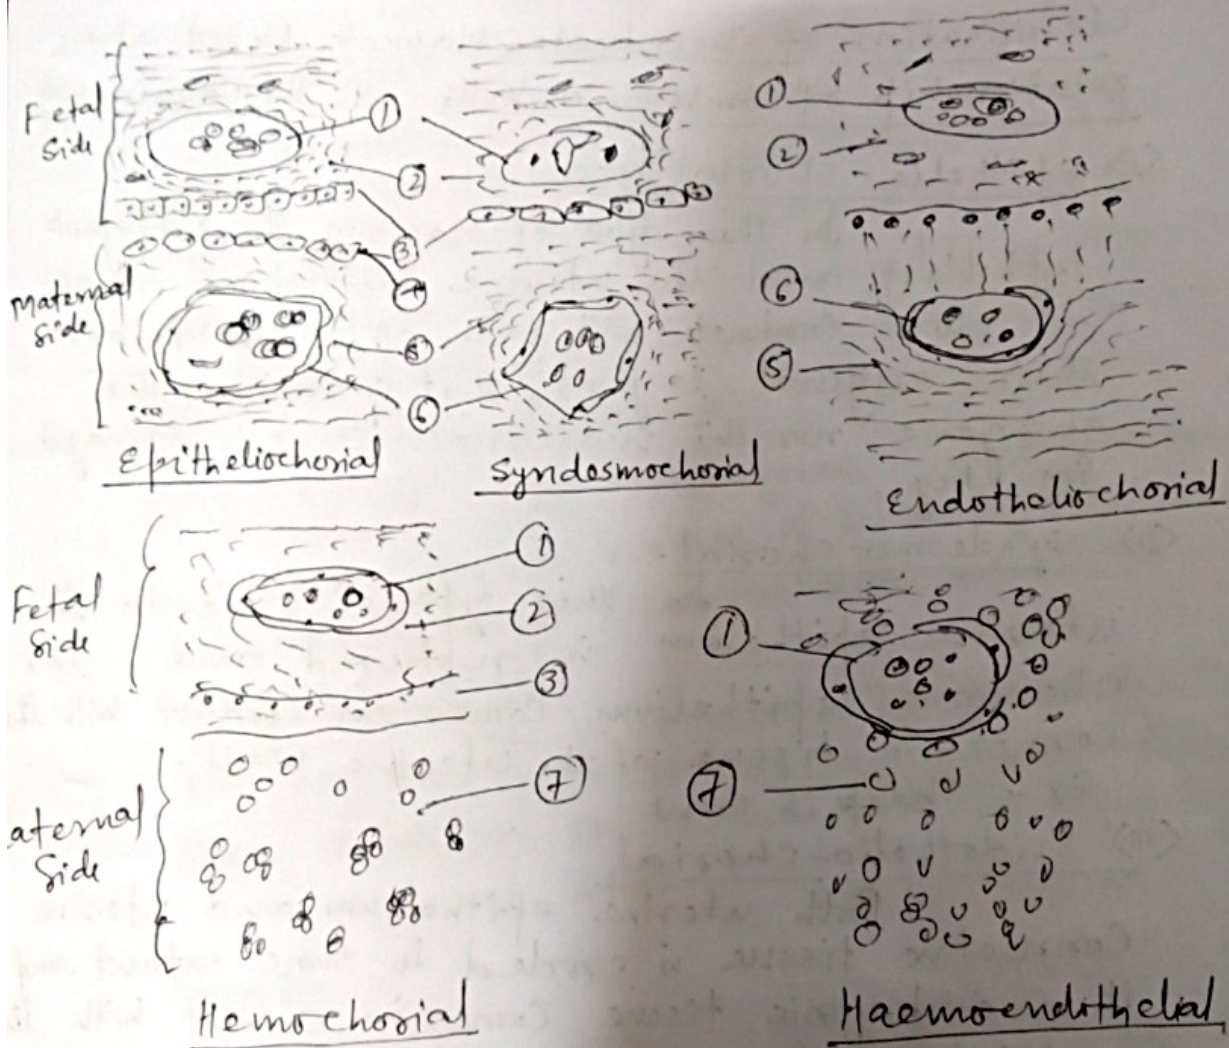 Fetal
Side
1
2
3
4
Maternal
Side
5
6
Epitheliochorial
Syndosmochorial
1
2
6
5
Endotheliochorial
Fetal
Side
1
2
3
aternal
Side
7
Hemochorial
1
7
Haemoendothelial